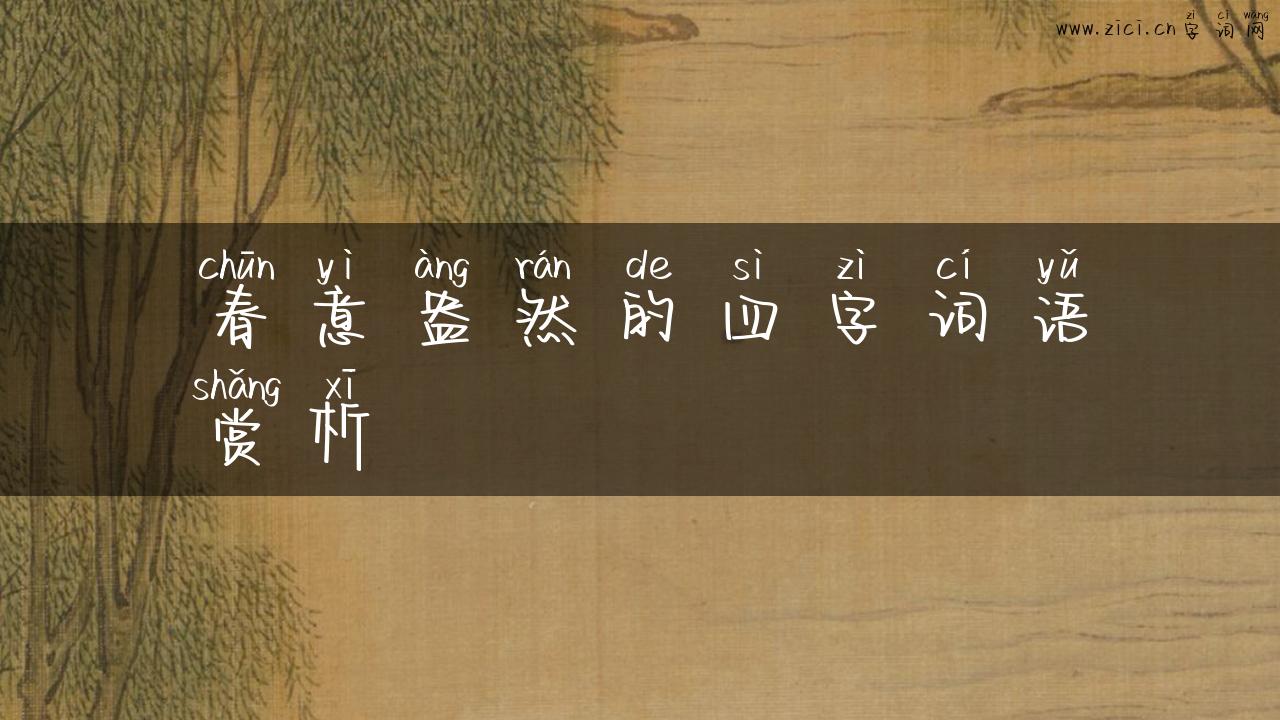 zì cí wǎng
www.zici.cn字词网
chūn yì àng rán de sì zì cí yǔ
春意盎然的四字词语
shǎng xī
赏析